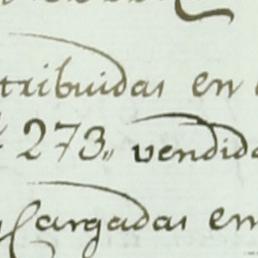 tribuidas en
273,, vendida
Cargadas en